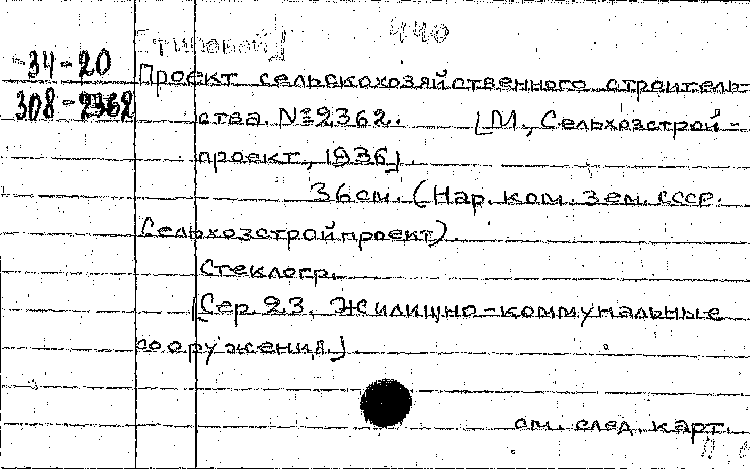 [типовой] 440
-34-20
Проект сельскохозяйственного строитель-
308-2362
ства. № 2362. [М., Сельхозстрой-
проект, 1936].
36 см. (Нар. ком. зем. СССР.
Сельхозстройпроект).
Стеклогр.
[Сер. 23. Жилищно-коммунальные
сооружения.].
см. след. карт.